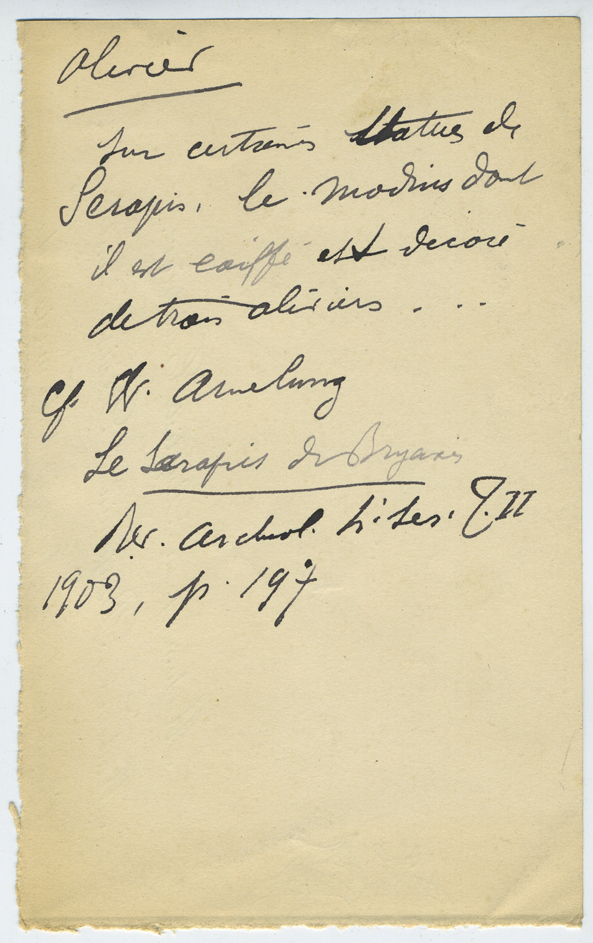 Olivier
Sur certaines statues de
Serapis, le modius dont
il est coiffé est décoré
de trois oliviers . . .
Cf. W. Amelung
Le Sarapis de Bryaxis
Rev. archéol. IVe Ser. T. II
1903, p. 197